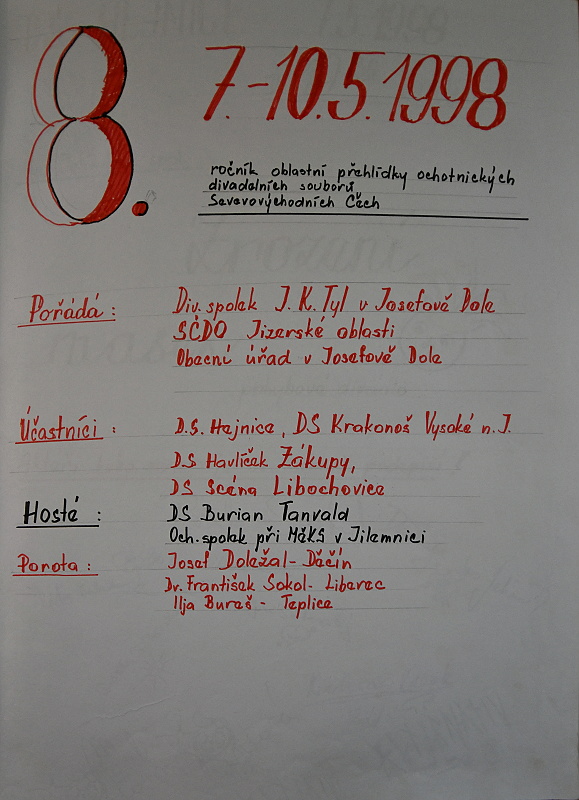 8.
7.-10.5.1998
ročník oblastní přehlídky ochotnických
divadelních souborů
Severovýchodních Čech
Pořádá: Div. spolek J. K. Tyl v Josefově Dole
SČDO Jizerské oblasti
Obecní úřad v Josefově Dole
Účastníci: D.S. Hajnice, DS Krakonoš Vysoké n. J.
DS Havlíček Zákupy,
DS Scéna Libochovice
Hosté: DS Burian Tanvald
Och. spolek při MěKS v Jilemnici
Porota: Josef Doležal - Děčín
Dr. František Sokol - Liberec
Ilja Bureš - Teplice